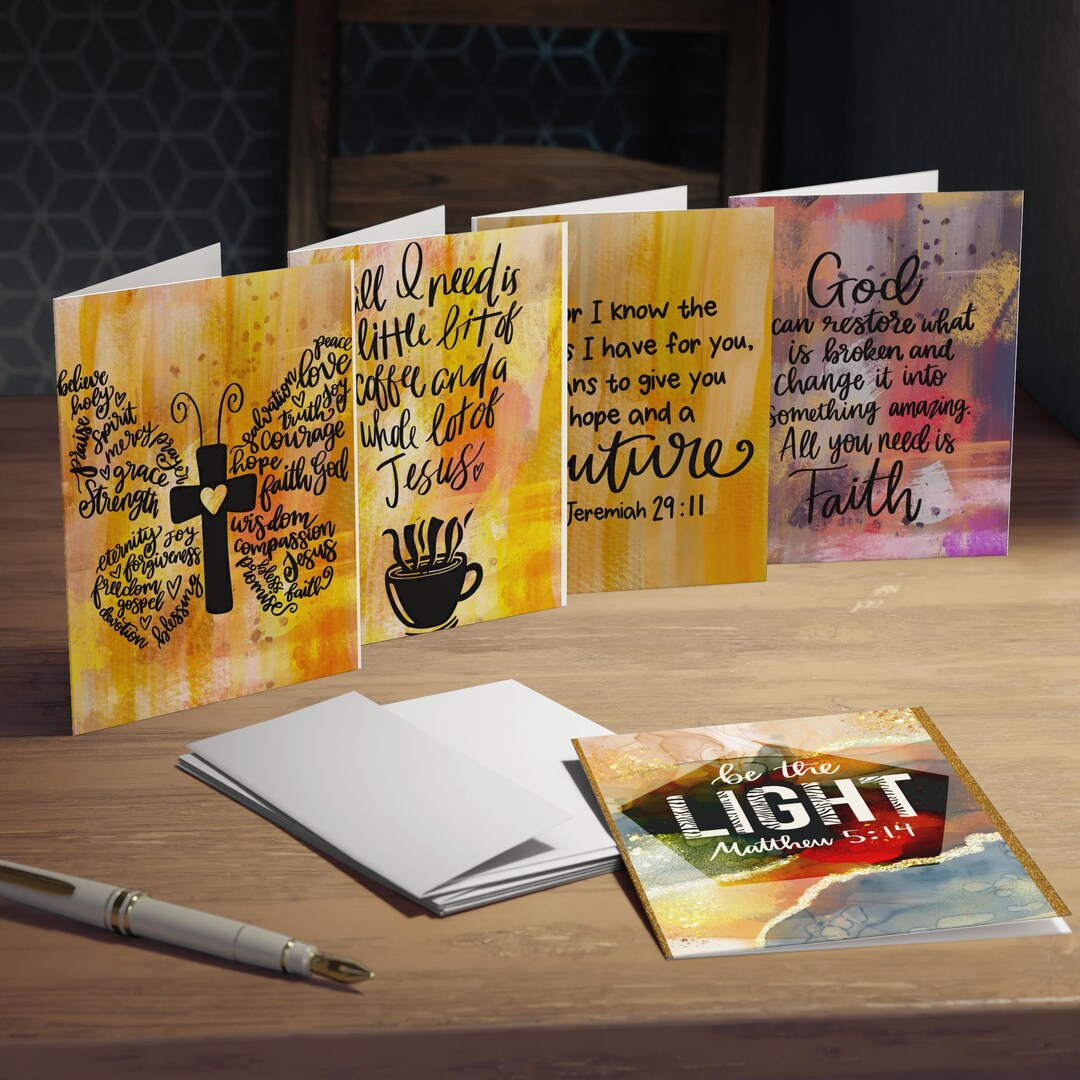 believe
holy
praise
spirit
mercy
prayer
grace
Strength
eternity
joy
forgiveness
freedom
gospel
devotion
blessing
peace
love
salvation
joy
truth
courage
hope
faith God
wisdom
compassion
bless
Jesus
promise
faith
all I need is
little bit of
coffee and a
whole lot of
Jesus
I know the
I have for you,
to give you
hope and a
uture
Jeremiah 29:11
God
can restore what
is broken and
change it into
something amazing.
All you need is
Faith
be the
LIGHT
Matthew 5:14